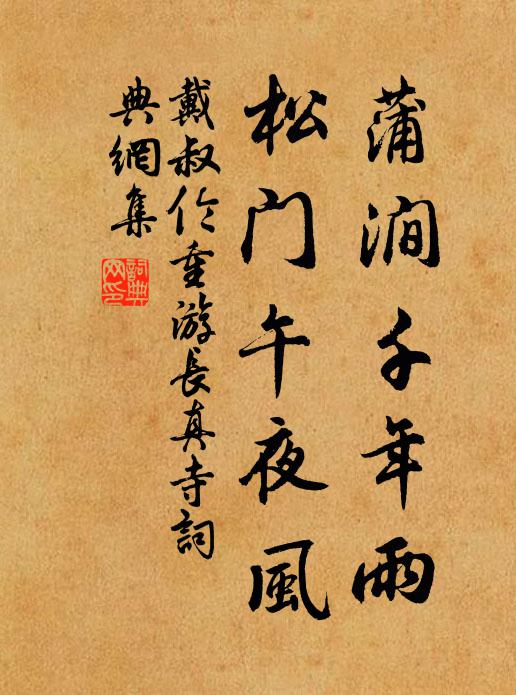 蒲澗千年雨
松门午夜風
戴叔伦重游長真寺詞
典網集
詞典
网印